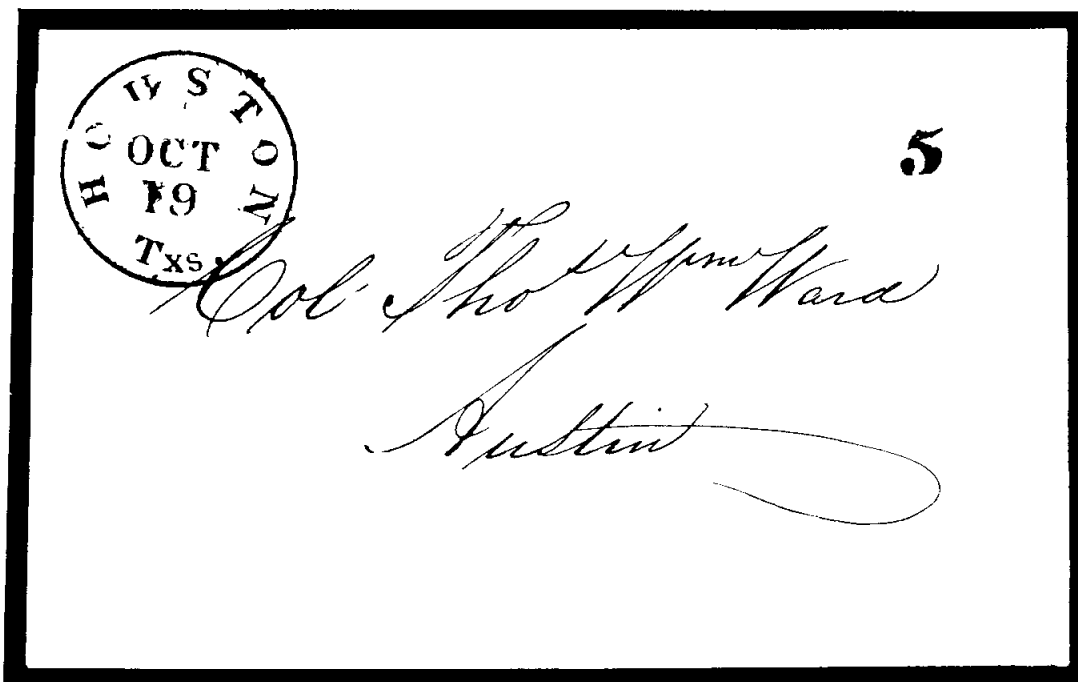 HOUSTON
OCT
19
Txs.
5
Col. Thos Wm Ward
Austin